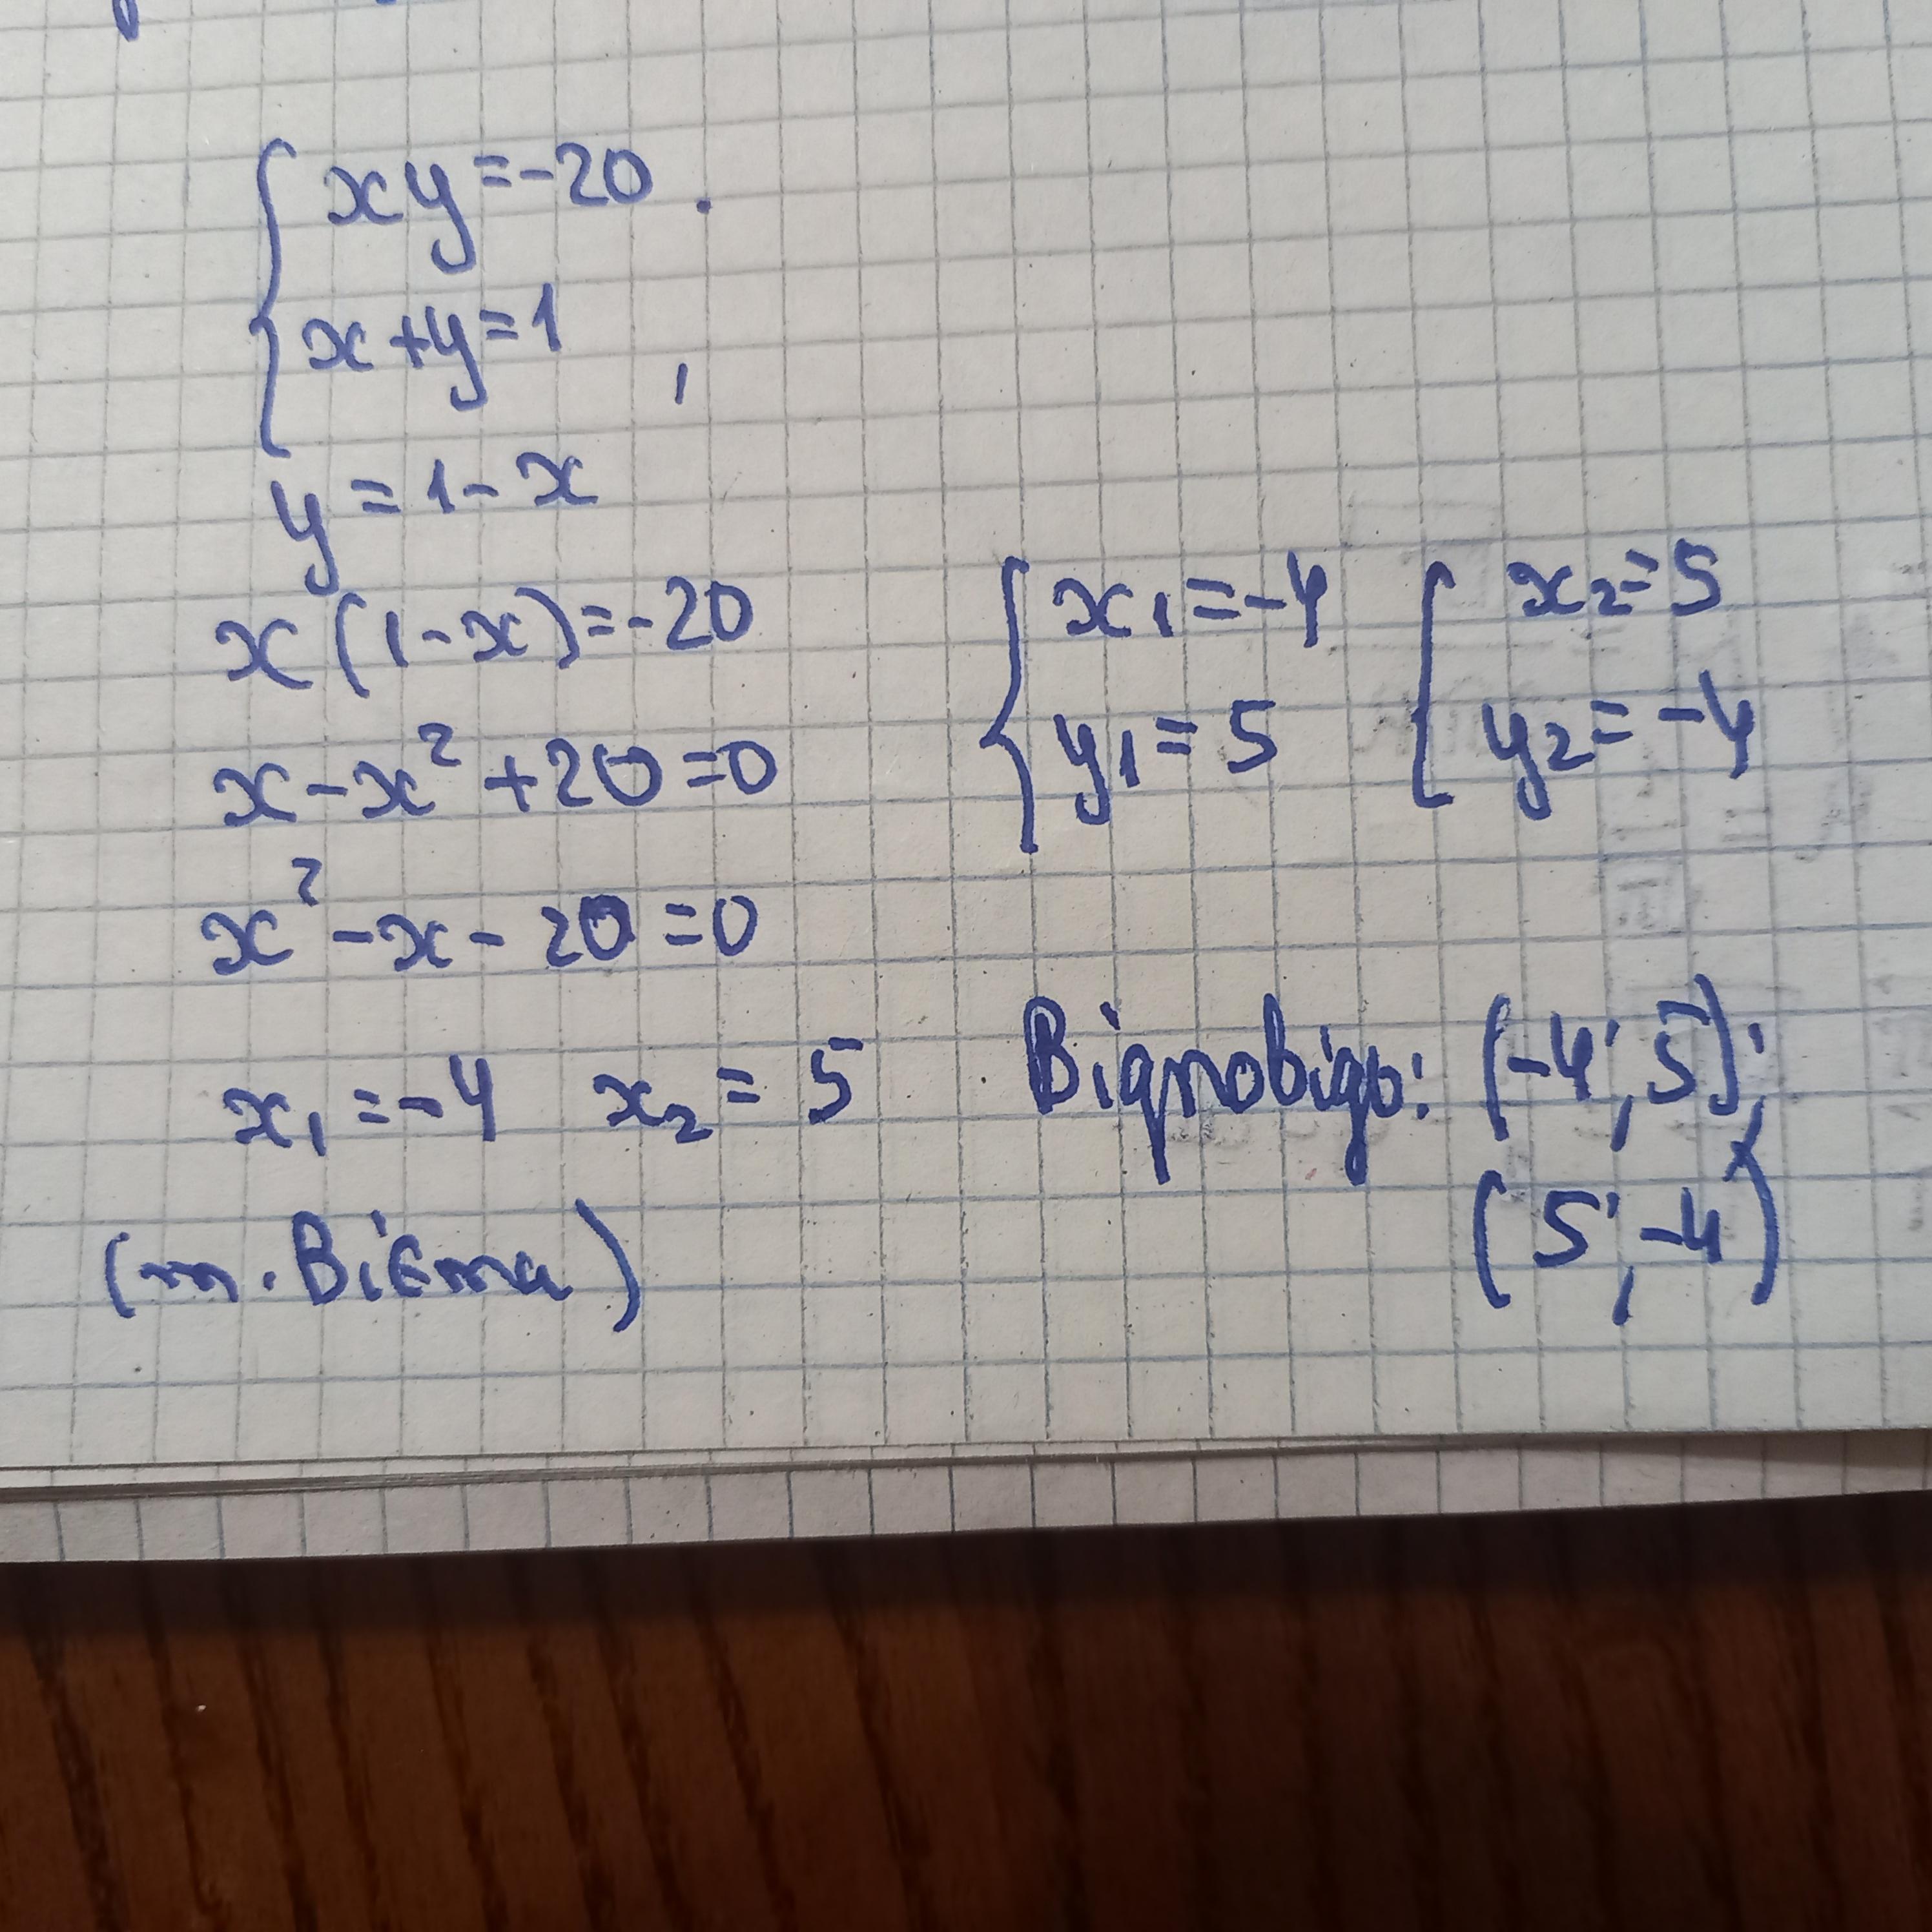 xy=-20
x+y=1
y=1-x
x(1-x)=-20
x-x²+20=0
x²-x-20=0
x₁=-4 x₂=5
(т. Вієта)
x₁=-4 x₂=5
y₁=5 y₂=-4
Відповідь: (-4;5);
(5;-4)